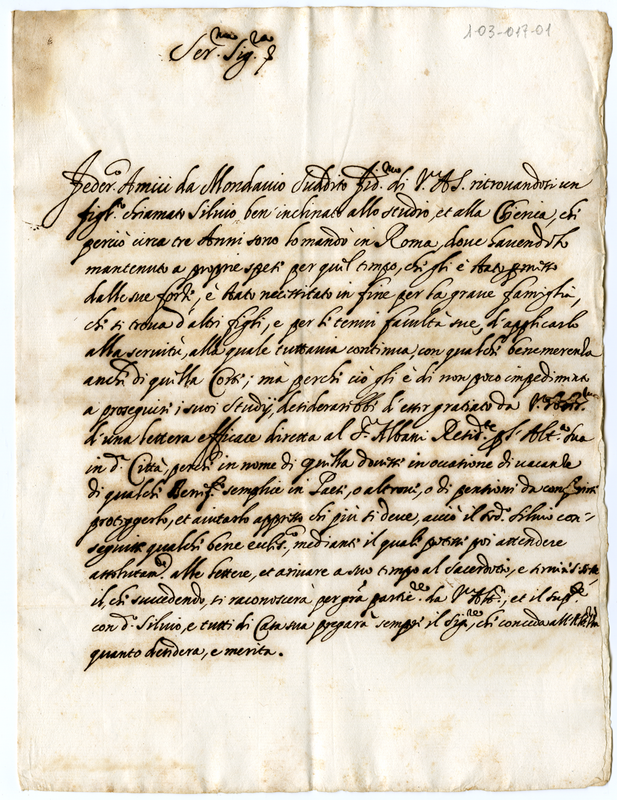 1-03-017-01
Ser.mo Sig.re
Feder.o Amici da Mondavio Suddito Fid.mo di V.A.S. ritrovandosi un
figl.o chiamato Silvio ben inclinato allo studio, et alla Chierica, che
perciò circa tre Anni sono lo mandò in Roma, dove havendolo
mantenuto a proprie spese per quel tempo, che gli è stato permesso
dalle sue forze, è stato necessitato in fine per la grave famiglia,
che si trova d'altri figli, e per le tenui facultà sue, d'applicarlo
alla servitù, alla quale tuttavia continua, con qualche benemerenza
anche di quella Corte; mà perche ciò gli è di non poco impedimento
a proseguire i suoi Studij, desiderarebbe d'esser gratiato da
d'una lettera efficace diretta al S.r Albani Resid.te p S. Alt.a sua
in d.a Città, perche in nome di quella dovesse in occasione di vacanze
di qualche Benef.o semplice in Paese, o altrove, o di pensioni da
proteggerlo, et aiutarlo appresso chi più si deve, acciò il sud.o Silvio con-
seguisse qualche bene eccles.o, mediante il quale potesse poi attendere
assolutam.te alle lettere, et arivare a suo tempo al Sacerdotio, e
il, che succedendo, si riconoscerà per gra partic.re da V.A., et il
con d.o Silvio, e tutti di Casa sua pregarà sempre il Sig.re, che conceda
quanto desidera, e merita.